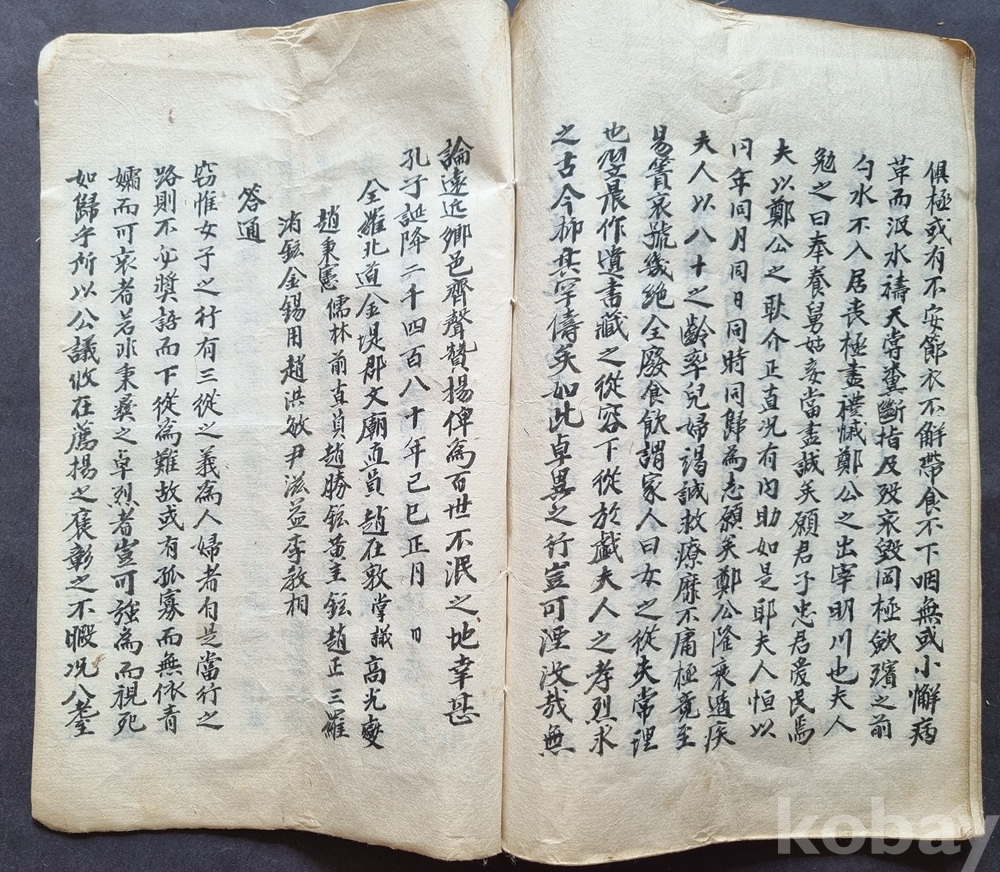 俱極或有不安節衣不解帶食不下咽無或小懈病
革而汲水禱天嘗糞斷指及歿哀毀罔極斂殯之前
勺水不入居喪極盡禮慽鄭公之出宰明川也夫人
勉之曰奉養舅姑妾當盡誠矣願君子忠君愛民焉
夫以鄭公之耿介正直况有內助如是耶夫人恒以
同年同月同日同時同歸為志願矣鄭公隆衰遘疾
夫人以八十之齡率兒婦謁誠救療靡不庸極竟至
易簀哀號幾絶全廢食飲謂家人曰女之從夫常理
也翌晨作遺書藏之從容下從於戱夫人之孝烈求
之古今抑其罕儔矣如此卓異之行豈可湮沒哉無
論遠近鄉邑齊聲贊揚俾為百世不泯之地幸甚
孔子誕降二千四百八十年己巳正月 日
全羅北道金堤郡文廟直員趙在敷掌議高光燮
趙秉憲儒林前直員趙勝鉉黃圭鉉趙正三羅
洧鉉金錫用趙洪敏尹滋益李敎相
答通
窃惟女子之行有三從之義為人婦者自是當行之
路則不必奬語而下從為難故或有孤寡而無依青
孀而可哀者若非秉彛之卓烈者豈可強為而視死
如歸乎所以公議攸在薦揚之褒彰之不暇况八耋
kobay